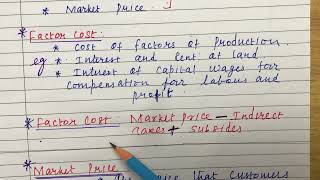 * Market price.
* Factor Cost:
* Cost of factors of production.
eg * Interest and rent at land.
* Interest of Capital wages for
compensation for labour and
profit.
* Factor Cost: Market Price - Indirect
taxes + subsides
* Market Price
price that customers